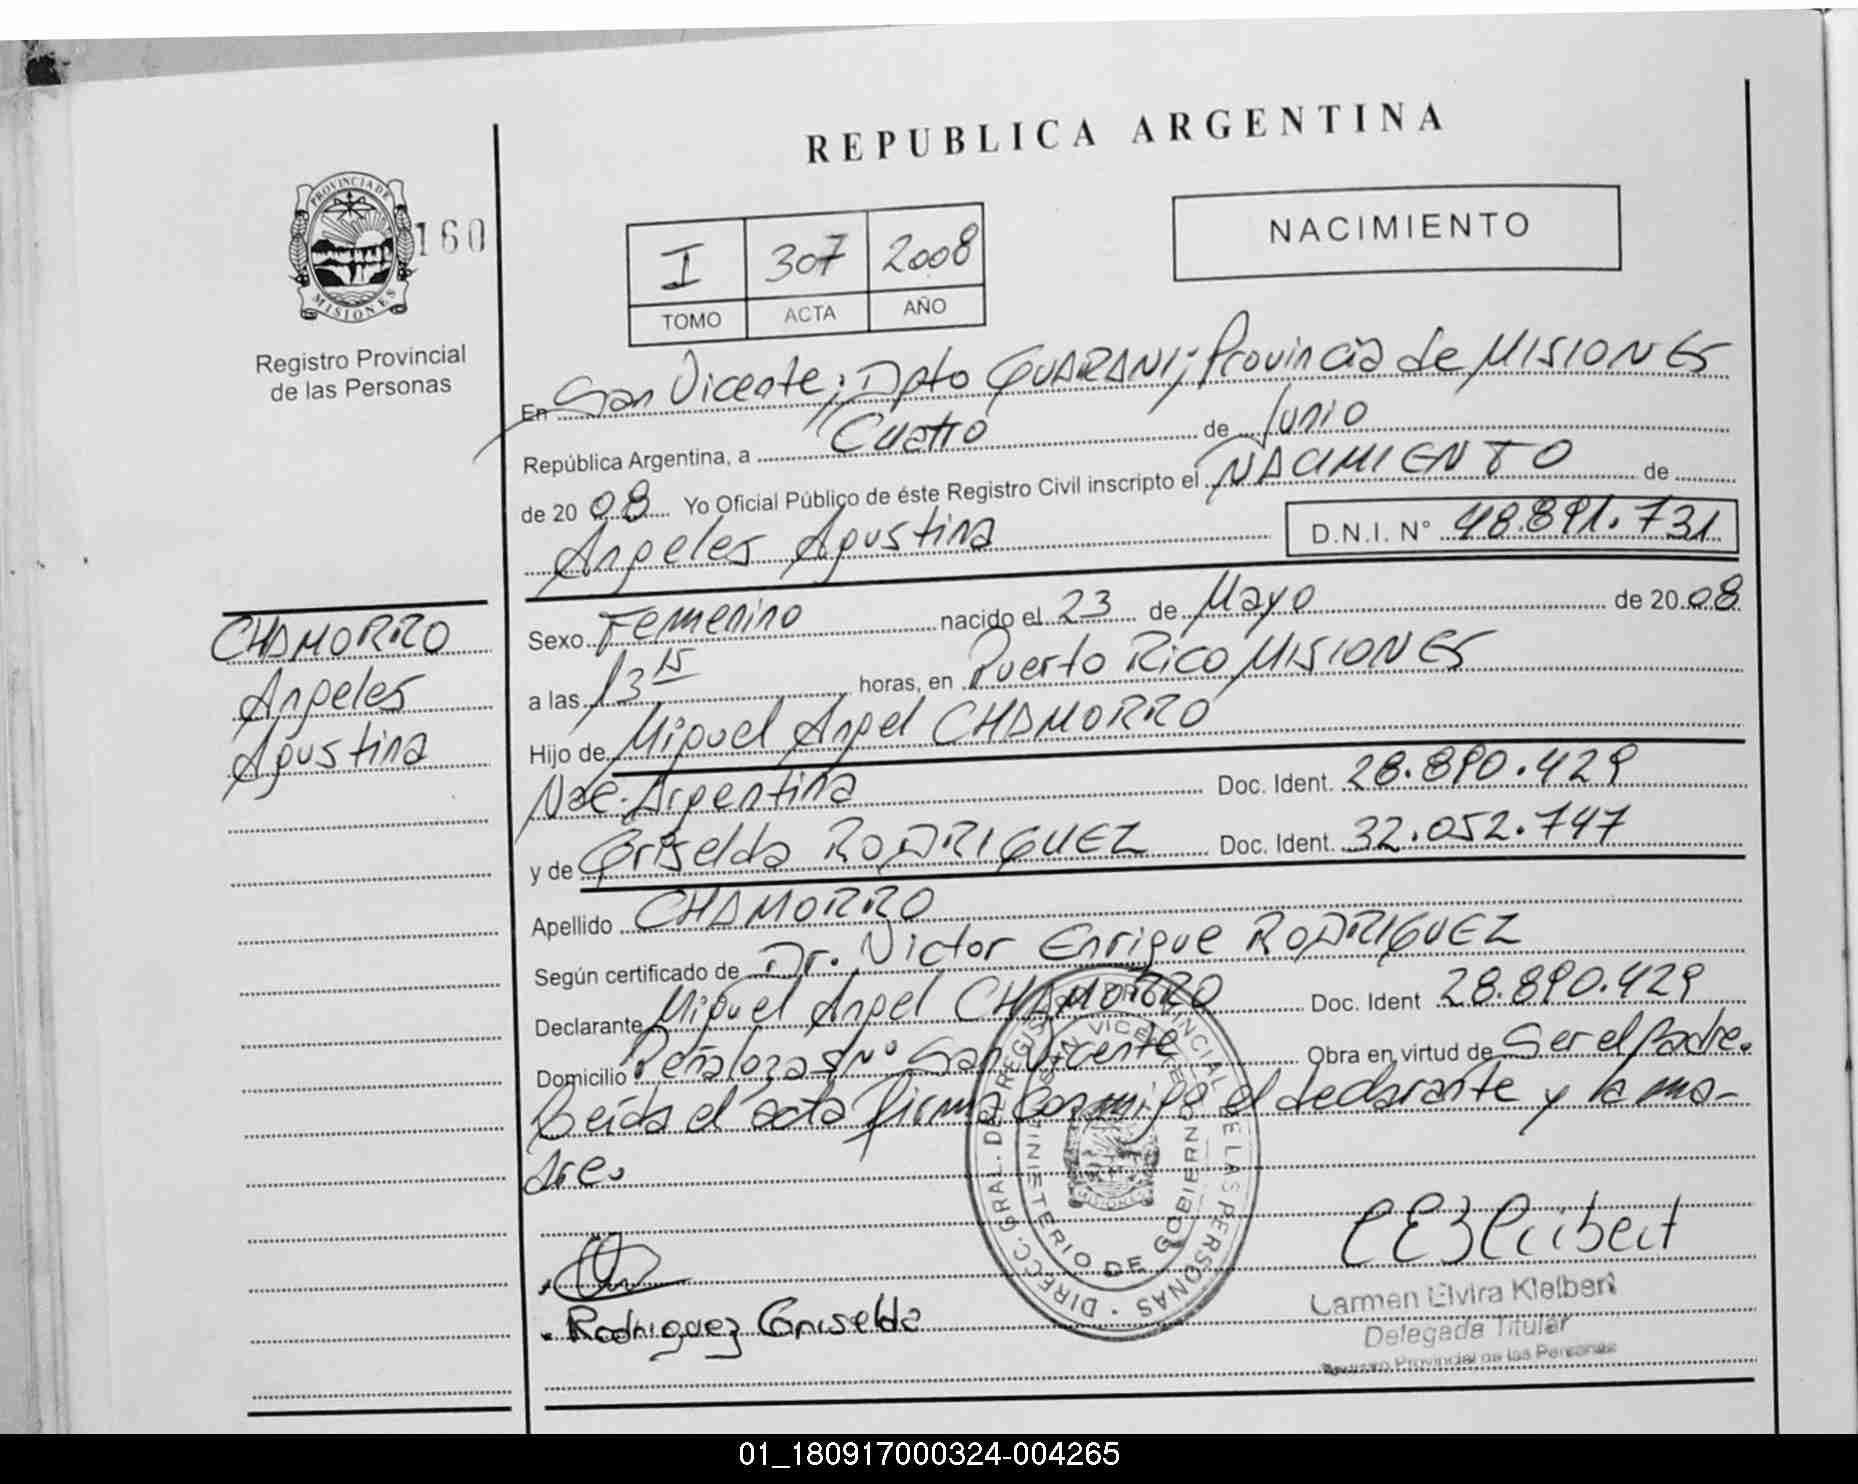 REPUBLICA ARGENTINA
PROVINCIA DE MISIONES
160
Registro Provincial
de las Personas
I 307 2008
TOMO ACTA AÑO
NACIMIENTO
En San Vicente; Dpto GUARANI; Provincia de MISIONES
República Argentina, a Cuatro de Junio
de 2008 Yo Oficial Público de éste Registro Civil inscripto el NACIMIENTO de
Angeles Agustina D.N.I. N° 48.891.731
CHAMORRO
Angeles
Agustina
Sexo Femenino nacido el 23 de Mayo de 2008
a las 13 15 horas, en Puerto Rico MISIONES
Hijo de Miguel Angel CHAMORRO
Nac. Argentina Doc. Ident. 28.890.429
y de Griselda RODRIGUEZ Doc. Ident. 32.052.747
Apellido CHAMORRO
Según certificado de Dr. Victor Enrique RODRIGUEZ
Declarante Miguel Angel CHAMORRO Doc. Ident 28.890.429
Domicilio Peñaloza s/nº San Vicente Obra en virtud de Ser el padre.
Leída el acta firma conmigo el declarante y la ma-
dre.
DIRECC. GRAL. DEL REGISTRO PROVINCIAL DE LAS PERSONAS
SAN VICENTE
MINISTERIO DE GOBIERNO
MISIONES
Rodriguez Griselda
Carmen Elvira Kleibert
Delegada Titular
Registro Provincial de las Personas
01_180917000324-004265